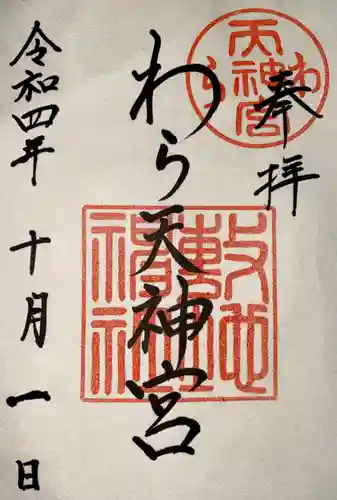 奉拝
わら天神宮
敷地神社
わら天神宮
令和四年十月一日